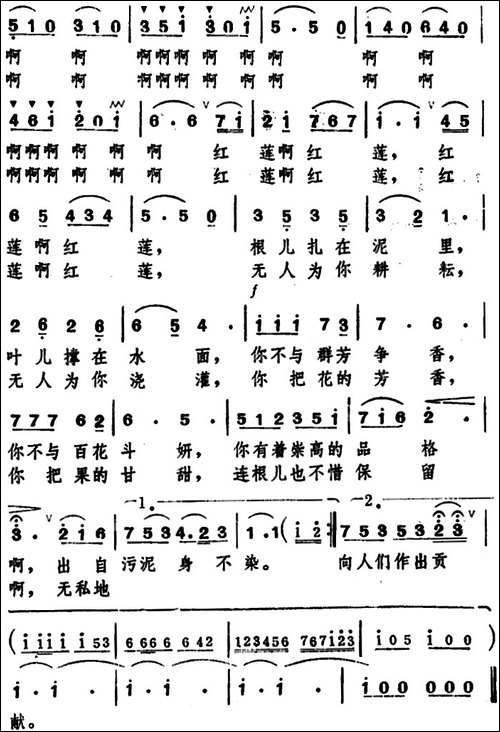 5 1 0 3 0 1 | 3 5 i 3 0 i | 5 · 5 0 | i 4 0 6 4 0 |
啊 啊 啊啊啊 啊 啊 啊 啊 啊
啊 啊 啊啊啊 啊 啊 啊 啊 啊
4 6 i 2 0 i | 6 · 6 7 i | 2 i 7 6 7 | i · i 4 5 |
啊啊啊 啊 啊 啊 红 莲啊红 莲, 红
啊啊啊 啊 啊 啊 红 莲啊红 莲, 红
6 5 4 3 4 | 5 · 5 0 | 3 5 3 5 | 3 2 1 · |
莲啊红 莲, 根儿扎在 泥 里,
莲啊红 莲, 无人为你 耕 耘,
f
2 6 2 6 | 6 5 4 · | i i i 7 3 | 7 · 6 · |
叶儿撑在 水 面, 你不与群芳 争 香,
无人为你 浇 灌, 你 把花的 芳 香,
7 7 7 6 2 | 6 · 5 · | 5 1 2 3 5 i | 7 i 6 2 · |
你不与 百花 斗 妍, 你有着崇高的 品 格
你 把果的 甘 甜, 连根儿也不惜 保 留
1. 2.
3 · 2 i 6 | 7 5 3 4 · 2 3 | 1 · 1 ( i 2 :| 7 5 3 5 3 2 3 |
啊, 出 自 污泥 身 不 染。 向人们作出贡
啊, 无私地
( i i i i i 5 3 | 6 6 6 6 6 4 2 | 1 2 3 4 5 6 7 6 7 i 2 3 | i 0 5 i 0 0 )
i · i · | i · i · | i · i · | i 0 0 0 0 0 ‖
献。